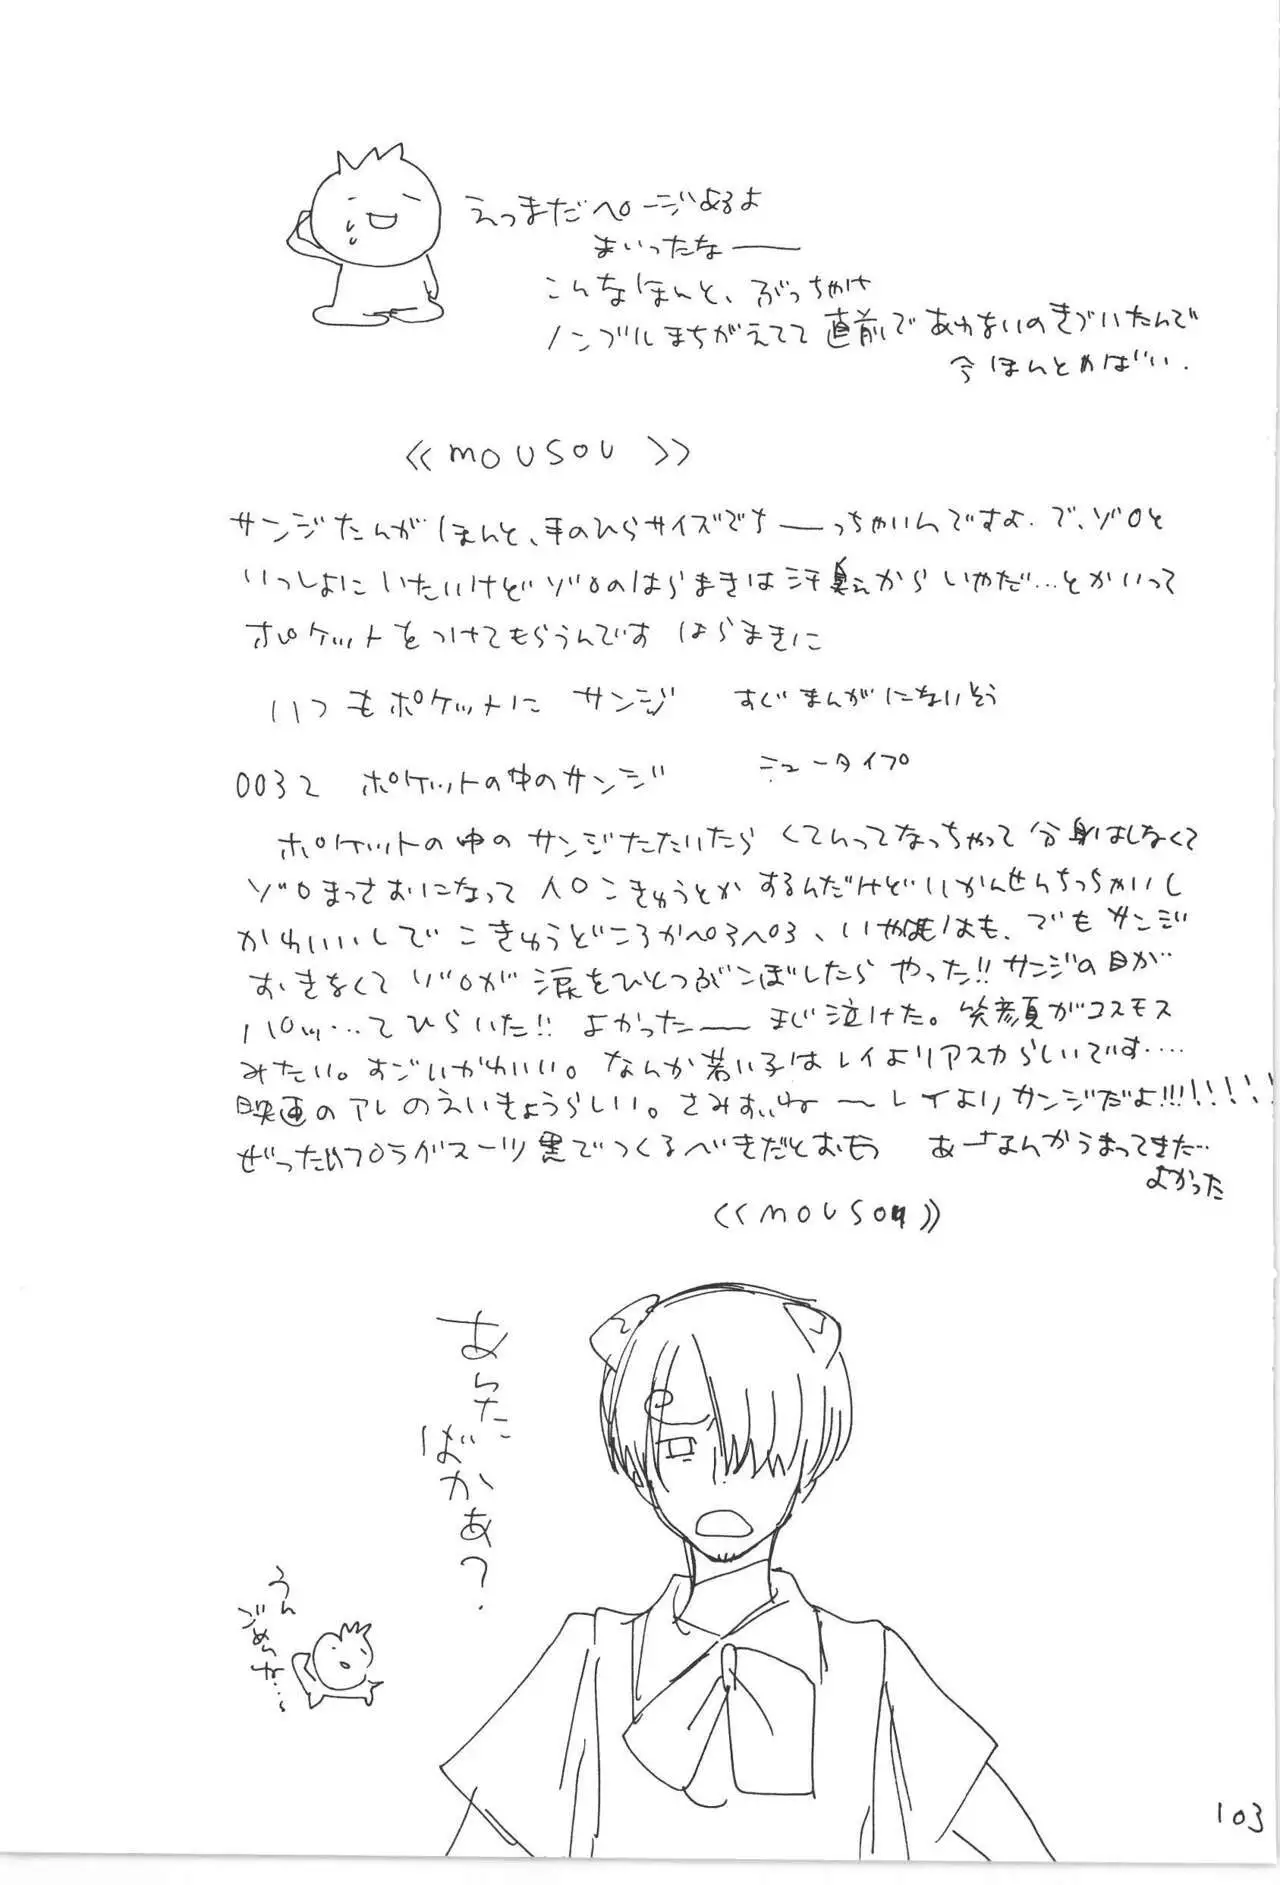 えっまだページあるよ
まいったなー
こんなほんと、ぶっちゃけ
ノンブルまちがえてて直前であわないのきづいたんで
今ほんとやばい.
《MOUSOU》
サンジたんがほんと、手のひらサイズでちーっちゃいんですよ. で、ゾロと
いっしょにいたいけどゾロのはらまきは汗臭えからいやだ…とかいって
ポケットをつけてもらうんです はらまきに
いつもポケットに サンジ すぐまんがにないそう
0032 ポケットの中のサンジ ニュータイプ
ポケットの中のサンジたたいたら くてんってなっちゃって 分身はしなくて
ゾロまっさおになって人口こきゅうとかするんだけどいかんせんちっちゃいし
かわいいしでこきゅうどころかペロペロ、いやはむはも、でもサンジ
おきなくてゾロが涙をひとつぶこぼしたらやった!!サンジの目が
パロッ…てひらいた!! よかったーまじ泣けた。笑顔がコスモス
みたい。すごいかわいい。なんか若い子はレイよりアスカらしいです….
映画のアレのえいきょうらしい。さみすぃねーレイよりサンジだよ!!!!!!!!
ぜったいプロラがスーツ黒でつくるべきだとおもう あーさるんかうまってきた…
よかった
《MOUSOU》
あんた
ばかぁ?
うん
ごめんな…
103